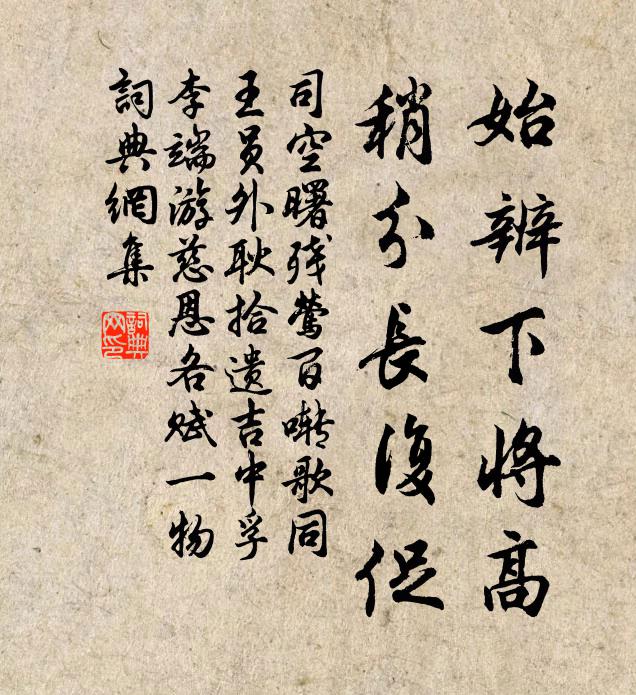 始辨下將高
稍分長復促
司空曙殘鶯百囀歌同
王員外耿拾遺吉中孚
李端游慈恩各賦一物
詞典網集
詞典
网印